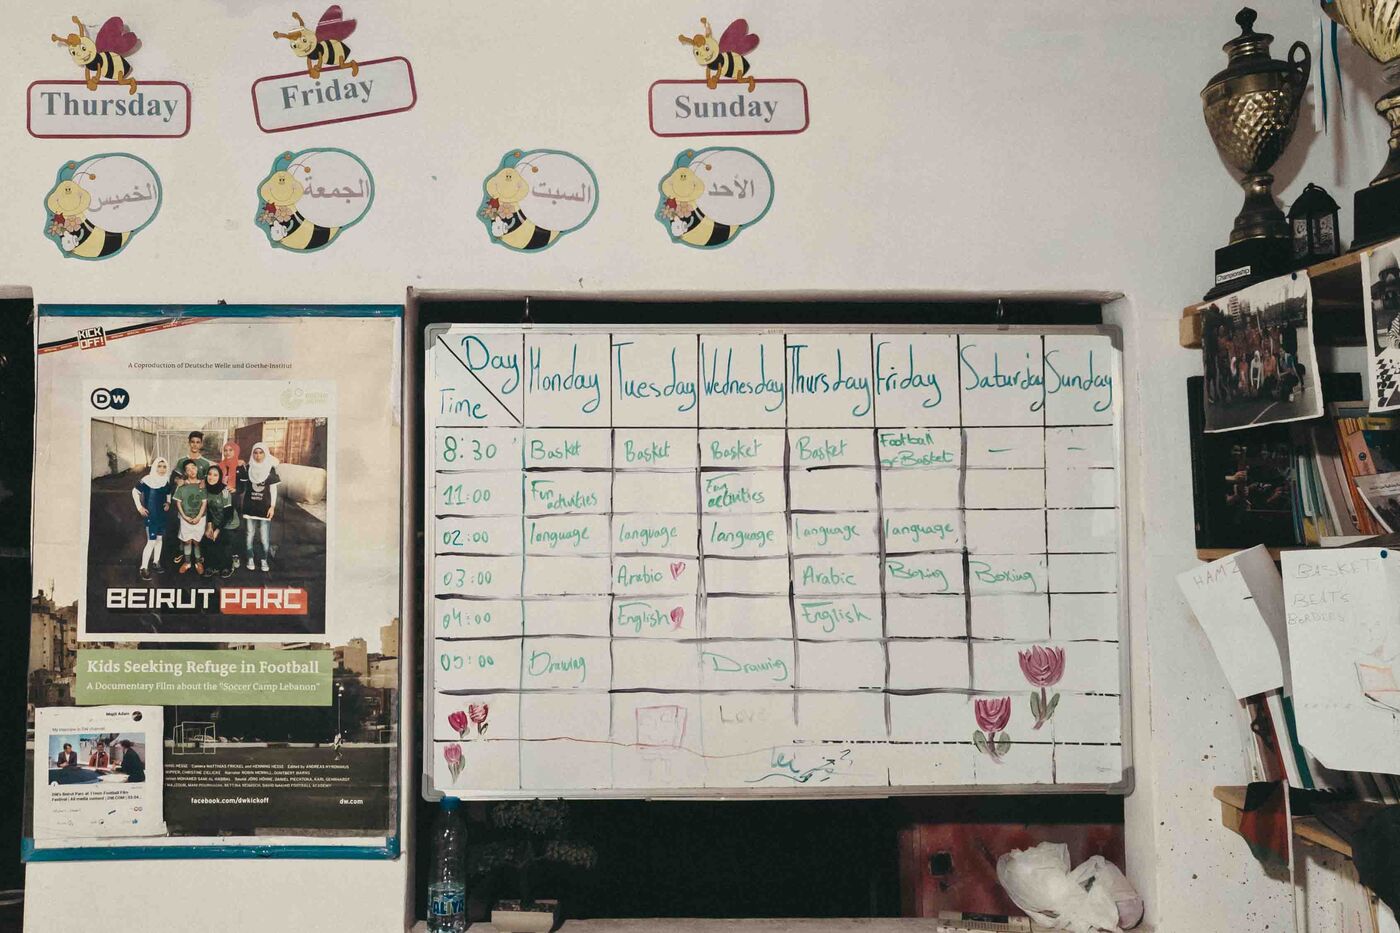 Thursday
Friday
Sunday
الخميس
الجمعة
السبت
الأحد
KICK
OFF!
A Coproduction of Deutsche Welle und Goethe-Institut
DW
BEIRUT PARC
Kids Seeking Refuge in Football
A Documentary Film about the "Soccer Camp Lebanon"
Majdi Adam
My interview in DW channel
facebook.com/dwkickoff
dw.com
Day
Time
Monday Tuesday Wednesday Thursday Friday Saturday Sunday
8:30 Basket Basket Basket Basket Football or Basket - -
11:00 Fun activities Fun activities
02:00 language language language language language
03:00 Arabic Arabic Boxing Boxing
04:00 English English
05:00 Drawing Drawing
Love
Championship
HAMZ
BASKET
BEATS
BORDERS